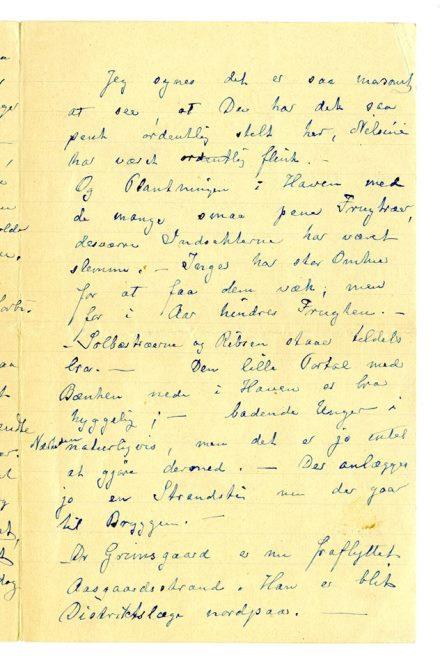 Jeg synes det er saa morsomt
at see, at Du har det saa
pent ordentlig stelt her, Nelsine
har været ordentlig flink. —
Og Plantningen i Haven med
de mange smaa pene Frugtrær,
desværre Insekterne har været
slemme. — Inger har stor Omhu
for at faa dem væk; men
for i Aar hindres Frugten. —
Solbærtræerne og Ribsen staar tildels
bra. — Den lille Portal med
Bænken nede i Haven er bra
hyggelig; — badende Unger i
Nærheden naturligvis, men det er jo intet
at gjøre dermed. — Der anlægges
jo en Strandsti nu der gaar
til Bryggen. —
Dr Grimsgaard er nu fraflyttet
Aasgaardsstrand. Han er blit
Distriktslæge nordpaa. —